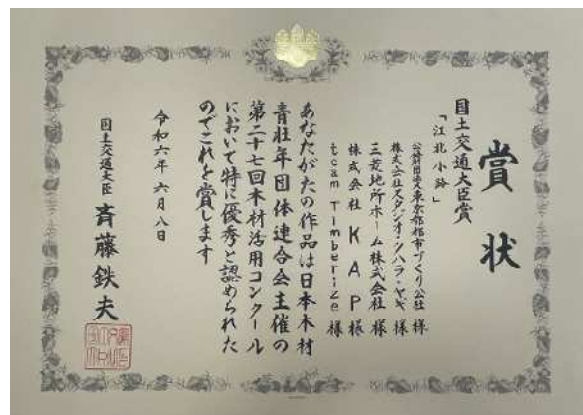 賞状
国土交通大臣賞
「江北小路」
公益財団法人東京都都市づくり公社 様
株式会社スタジオ・クハラ・ヤギ 様
三菱地所ホーム株式会社 様
株式会社 KAP 様
team Timberize 様
あなたがたの作品は日本木材
青壮年団体連合会主催の
第二十七回木材活用コンクール
において特に優秀と認められた
のでこれを賞します
令和六年六月八日
国土交通大臣 斉藤鉄夫